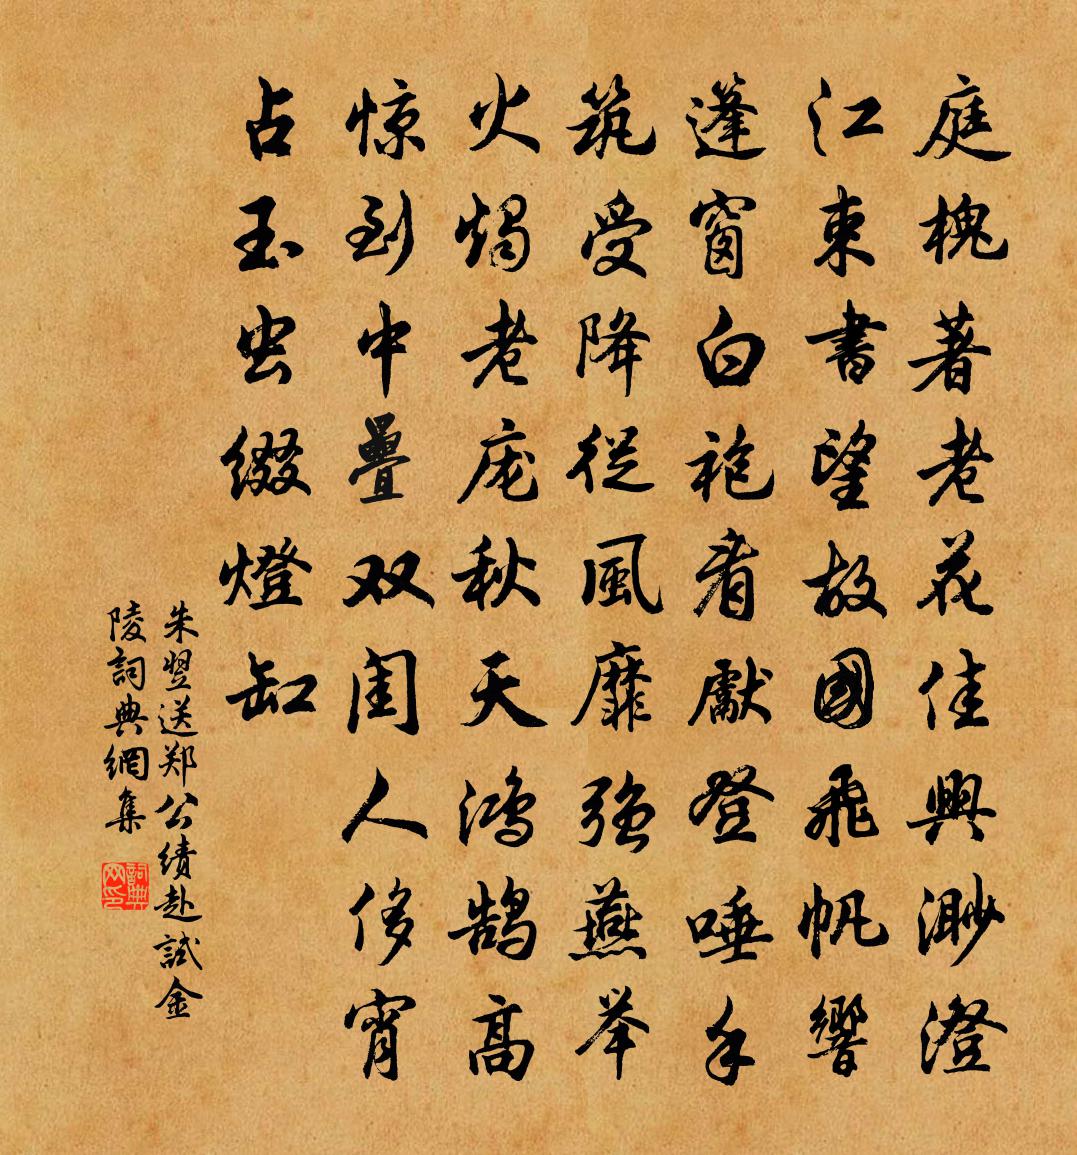 庭槐著老花佳興渺澄
江東書望故國飛帆響
蓬窗白袍看獻登唾手
筑受降從風靡強燕举
火燭老庞秋天鴻鹄高
惊到中疊双闺人侈宵
占玉虫缀燈缸
朱翌送郑公绩赴試金
陵詞典網集
詞典
网印